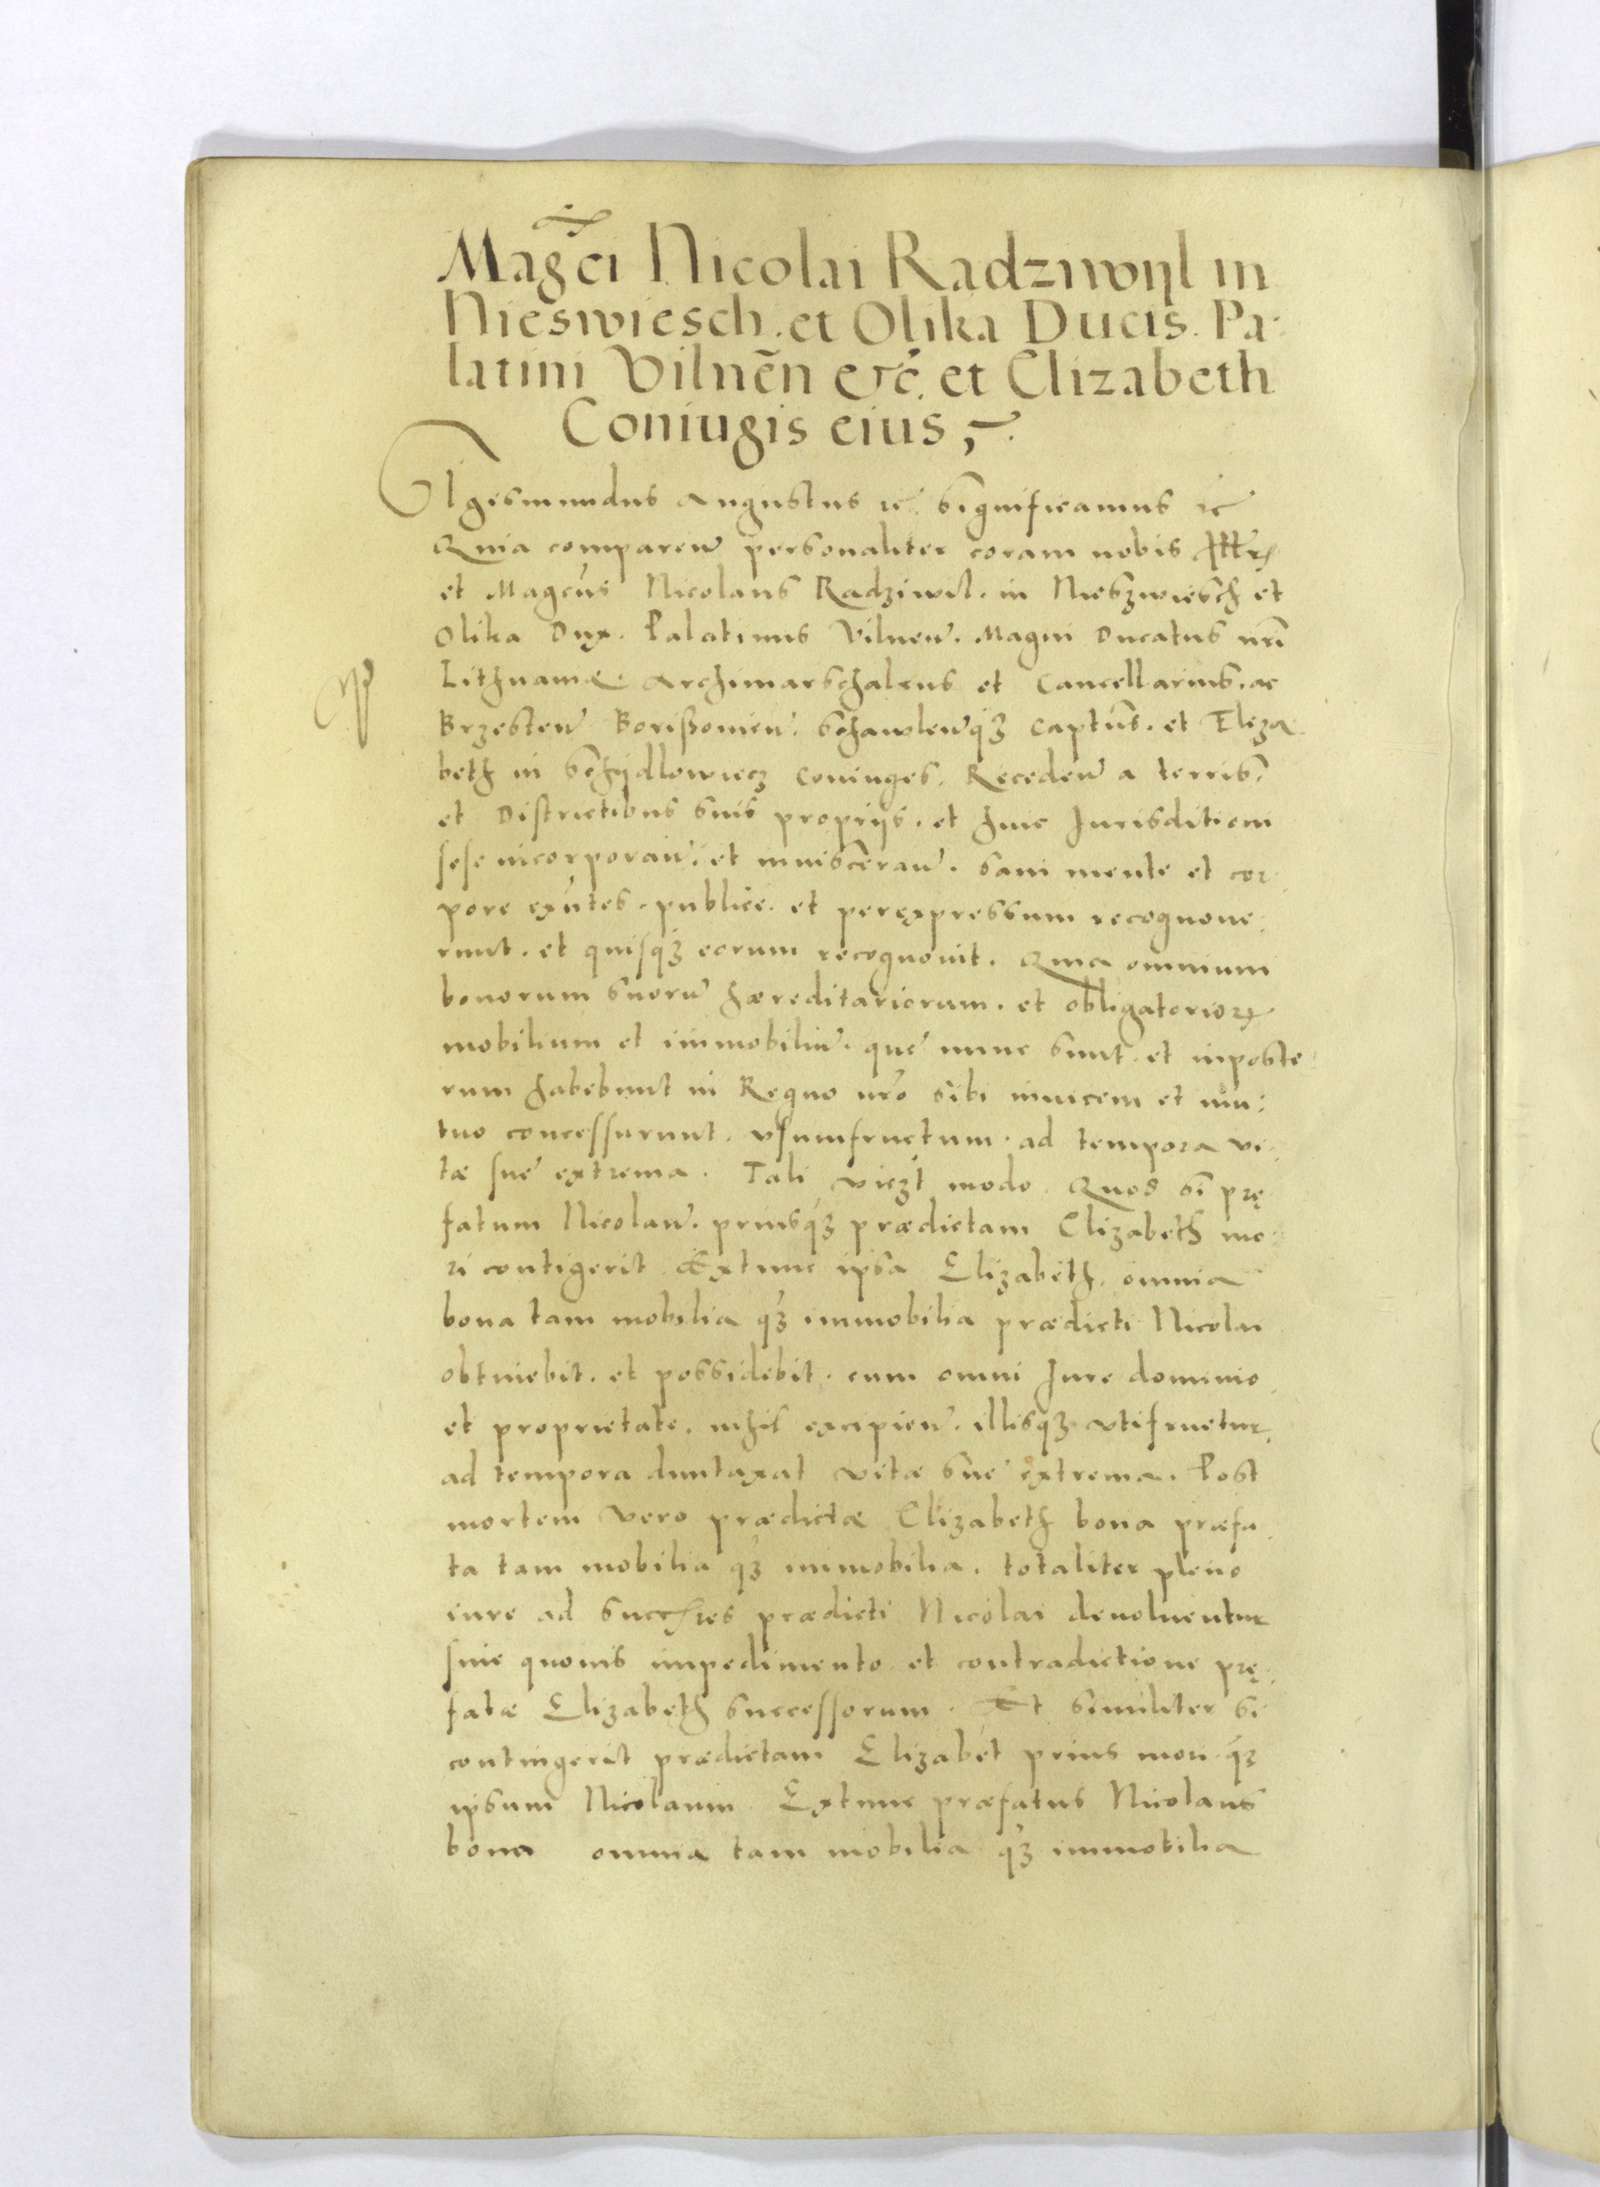 Magc̃i Nicolai Radziwyl in
Nieswiesch. et Olika Ducis. Pa:
latini Vilnẽn &c̃. et Elizabeth
Coniugis eius,
Sigismundus Augustus &c. significamus &c
Quia comparen̄ personaliter coram nobis Illr̃
et Magcus Nicolaus Radziwil. in Nieszwiesch et
Olika Dux. Palatinus Vilnen̄. Magni Ducatus nr̃i
Lithuaniæ Archimarschalcus et Cancellarius. ac
Brzesten̄ Borißouien̄. Schawlen̄q3 Captus. et Eliza
beth in Schydlowiecz Coniuges. Receden̄ a terris.
et Districtibus suis proprijs. et huic Jurisditioni
sese incorporan̄. et inuisceran̄. sani mente et cor
pore exñtes. publice. et perexpressum recognoue
runt. et quisq3 eorum recognouit. Quia omnium
bonorum suorū hæreditariorum. et obligatoriorꝝ
mobilium et immobiliū. que nunc sunt. et inposte
rum habebunt in Regno nrõ sibi inuicem et mu:
tuo concessurunt. vsumfructum. ad tempora vi
tæ sue extrema. Tali vicz̃t modo. Quod si prę
fatum Nicolaū. priusq3 prædictam Elizabeth mo:
ri contigerit Extunc ipsa Elizabeth. omnia
bona tam mobilia q3 immobilia prædicti Nicolai
obtinebit. et possidebit. cum omni Jure dominio
et proprietate. nihil excipien̄. illisq3 vtifruetur
ad tempora duntaxat vitæ sue extrema. Post
mortem vero prædictæ Elizabeth bona præfa
ta tam mobilia q3 immobilia. totaliter pleno
iure ad succ̃res prædicti Nicolai deuoluentur
sine quouis impedimento et contradictione prę
fatæ Elizabeth successorum. Et similiter si
contingerit prædictam Elizabet prius mori q3
ipsum Nicolaum Extunc præfatus Nicolaus
bona omnia tam mobilia q3 immobilia